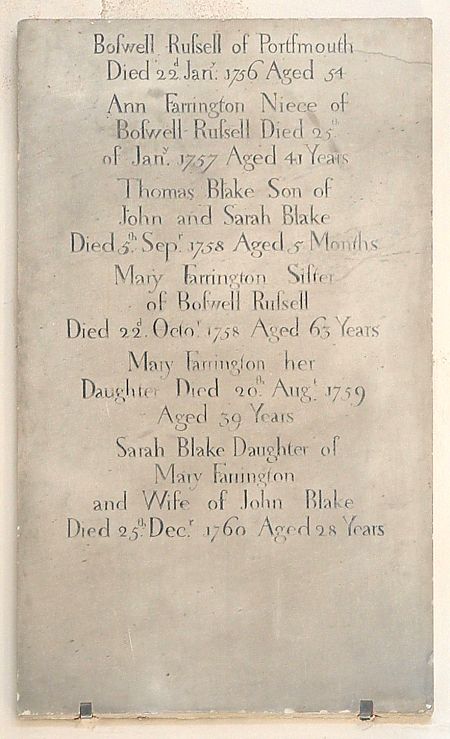 Boſwell Ruſſell of Portſmouth
Died 22d Jany. 1756 Aged 54
Ann Farrington Niece of
Boſwell Ruſſell Died 25th
of Jany. 1757 Aged 41 Years
Thomas Blake Son of
John and Sarah Blake
Died 5th. Sepr. 1758 Aged 5 Months
Mary Farrington Siſter
of Boſwell Ruſſell
Died 22d. Octor. 1758 Aged 63 Years
Mary Farrington her
Daughter Died 20th. Augt. 1759
Aged 39 Years
Sarah Blake Daughter of
Mary Farrington
and Wife of John Blake
Died 25th. Decr. 1760 Aged 28 Years